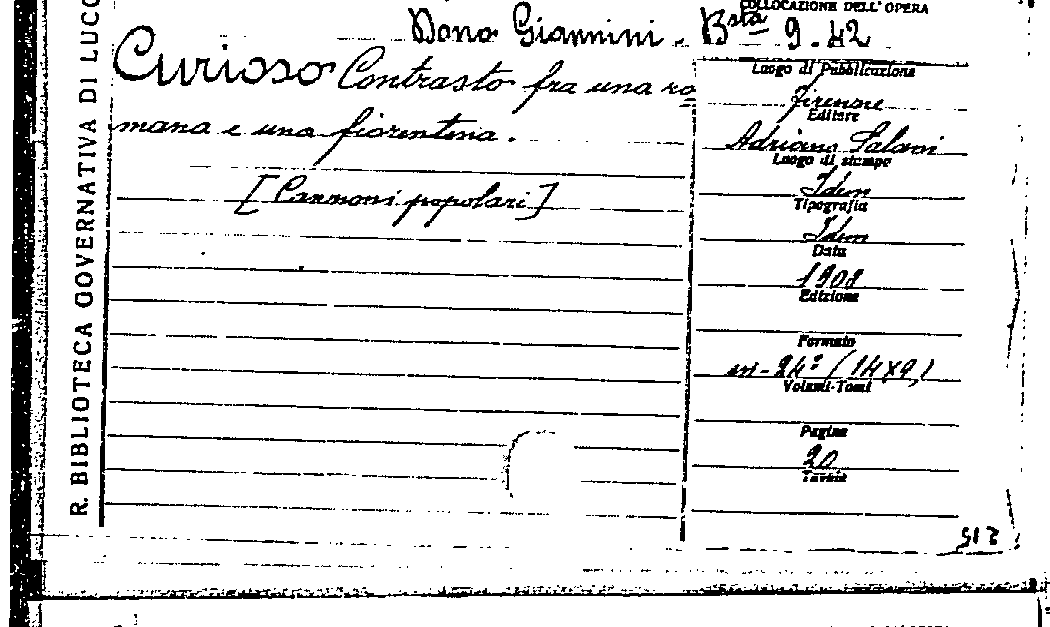 COLLOCAZIONE DELL'OPERA
Dono Giannini. Bsta 9.42
Curioso Contrasto fra una ro
mana e una fiorentina.
[Canzoni popolari]
R. BIBLIOTECA GOVERNATIVA DI LUCC
Luogo di Pubblicazione
Firenze
Editore
Adriano Salani
Luogo di stampa
Idem
Tipografia
Idem
Data
1908
Edizione
Formato
in-24° (14x9,)
Volumi-Tomi
Pagine
20
Tavole